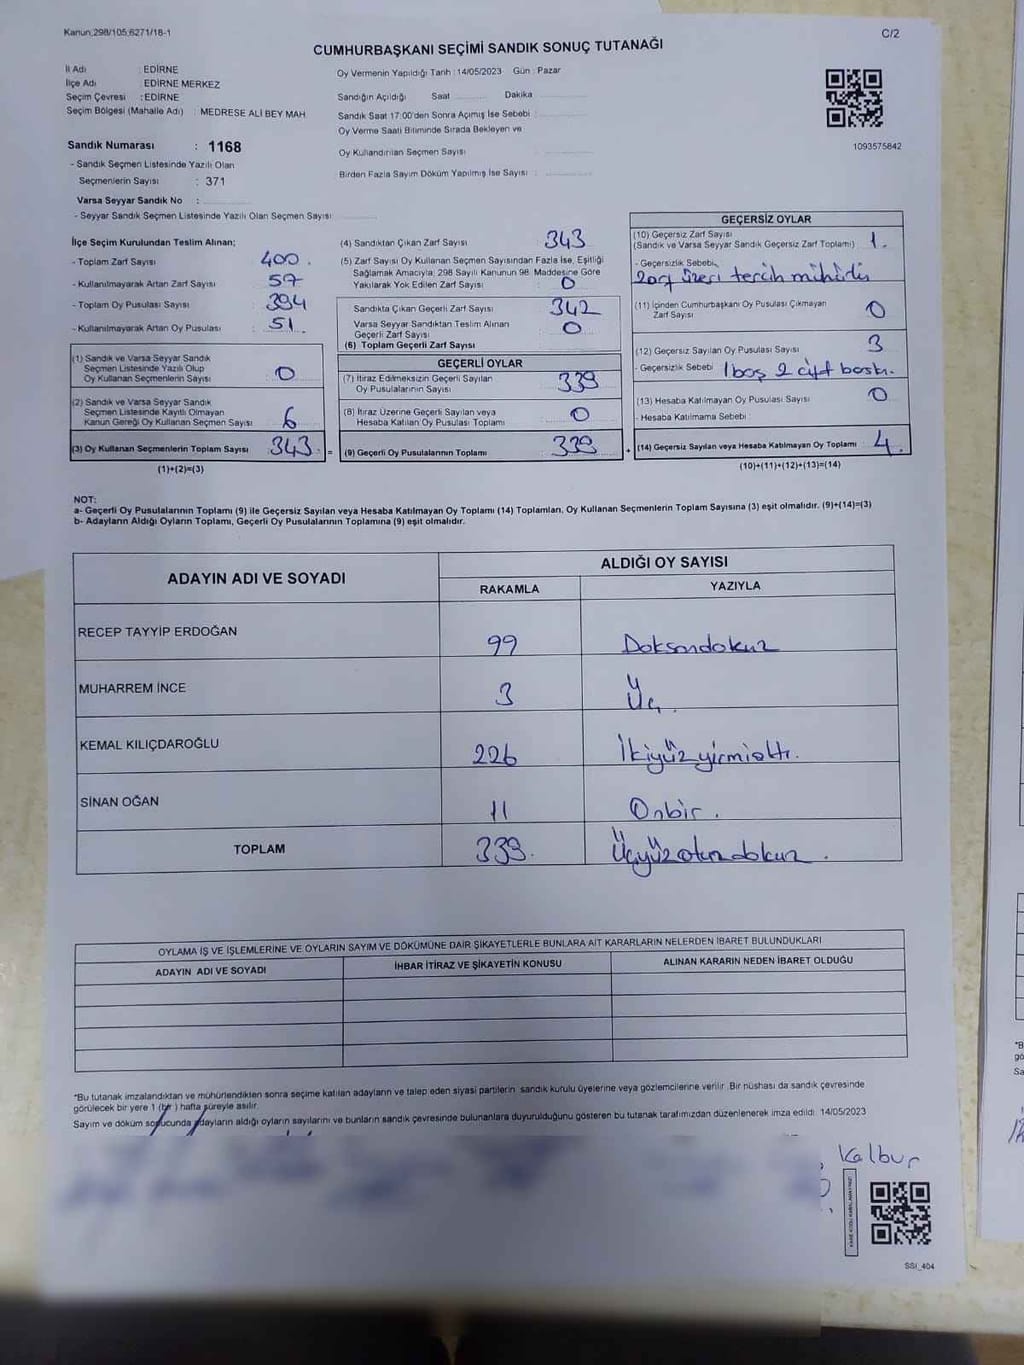 Kanun,298/105,6271/18-1
C/2
CUMHURBAŞKANI SEÇİMİ SANDIK SONUÇ TUTANAĞI
İl Adı : EDİRNE
İlçe Adı : EDİRNE MERKEZ
Seçim Çevresi : EDİRNE
Seçim Bölgesi (Mahalle Adı) : MEDRESE ALİ BEY MAH
Sandık Numarası : 1168
- Sandık Seçmen Listesinde Yazılı Olan
Seçmenlerin Sayısı : 371
Varsa Seyyar Sandık No :
- Seyyar Sandık Seçmen Listesinde Yazılı Olan Seçmen Sayısı
Oy Vermenin Yapıldığı Tarih : 14/05/2023 Gün : Pazar
Sandığın Açıldığı Saat Dakika
Sandık Saat 17:00'den Sonra Açımış İse Sebebi :
Oy Verme Saati Bitiminde Sırada Bekleyen ve
Oy Kullandırılan Seçmen Sayısı :
Birden Fazla Sayım Döküm Yapılmış İse Sayısı :
1093575842
İlçe Seçim Kurulundan Teslim Alınan;
- Toplam Zarf Sayısı : 400.
- Kullanılmayarak Artan Zarf Sayısı : 57
- Toplam Oy Pusulası Sayısı : 394
- Kullanılmayarak Artan Oy Pusulası : 51
(1) Sandık ve Varsa Seyyar Sandık
Seçmen Listesinde Yazılı Olup
Oy Kullanan Seçmenlerin Sayısı 0
(2) Sandık ve Varsa Seyyar Sandık
Seçmen Listesinde Kayıtlı Olmayan
Kanun Gereği Oy Kullanan Seçmen Sayısı 6
(3) Oy Kullanan Seçmenlerin Toplam Sayısı 343 =
(1)+(2)=(3)
(4) Sandıktan Çıkan Zarf Sayısı : 343
(5) Zarf Sayısı Oy Kullanan Seçmen Sayısından Fazla İse, Eşitliği
Sağlamak Amacıyla; 298 Sayılı Kanunun 98. Maddesine Göre
Yakılarak Yok Edilen Zarf Sayısı : 0
Sandıkta Çıkan Geçerli Zarf Sayısı : 342
Varsa Seyyar Sandıktan Teslim Alınan
Geçerli Zarf Sayısı : 0
(6) Toplam Geçerli Zarf Sayısı
GEÇERLİ OYLAR
(7) İtiraz Edilmeksizin Geçerli Sayılan
Oy Pusulalarının Sayısı : 339
(8) İtiraz Üzerine Geçerli Sayılan veya
Hesaba Katılan Oy Pusulası Toplamı : 0
(9) Geçerli Oy Pusulalarının Toplamı : 339 +
GEÇERSİZ OYLAR
(10) Geçersiz Zarf Sayısı
(Sandık ve Varsa Seyyar Sandık Geçersiz Zarf Toplamı) : 1.
- Geçersizlik Sebebi
zarf üzeri tercih mührüdür
(11) İçinden Cumhurbaşkanı Oy Pusulası Çıkmayan
Zarf Sayısı : 0
(12) Geçersiz Sayılan Oy Pusulası Sayısı : 3
- Geçersizlik Sebebi 1 boş 2 çift baskı.
(13) Hesaba Katılmayan Oy Pusulası Sayısı : 0
- Hesaba Katılmama Sebebi :
(14) Geçersiz Sayılan veya Hesaba Katılmayan Oy Toplamı : 4.
(10)+(11)+(12)+(13)=(14)
NOT:
a- Geçerli Oy Pusulalarının Toplamı (9) ile Geçersiz Sayılan veya Hesaba Katılmayan Oy Toplamı (14) Toplamları, Oy Kullanan Seçmenlerin Toplam Sayısına (3) eşit olmalıdır. (9)+(14)=(3)
b- Adayların Aldığı Oyların Toplamı, Geçerli Oy Pusulalarının Toplamına (9) eşit olmalıdır.
ADAYIN ADI VE SOYADI
ALDIĞI OY SAYISI
RAKAMLA YAZIYLA
RECEP TAYYİP ERDOĞAN 99 Doksandokuz
MUHARREM İNCE 3 Üç.
KEMAL KILIÇDAROĞLU 226 İkiyüzyirmialtı.
SİNAN OĞAN 11 Onbir.
TOPLAM 339. Üçyüzotuzdokuz.
OYLAMA İŞ VE İŞLEMLERİNE VE OYLARIN SAYIM VE DÖKÜMÜNE DAİR ŞİKAYETLERLE BUNLARA AİT KARARLARIN NELERDEN İBARET BULUNDUKLARI
ADAYIN ADI VE SOYADI İHBAR İTİRAZ VE ŞİKAYETİN KONUSU ALINAN KARARIN NEDEN İBARET OLDUĞU
*Bu tutanak imzalandıktan ve mühürlendikten sonra seçime katılan adayların ve talep eden siyasi partilerin sandık kurulu üyelerine veya gözlemcilerine verilir. Bir nüshası da sandık çevresinde
görülecek bir yere 1 (bir) hafta süreyle asılır.
Sayım ve döküm sonucunda adayların aldığı oyların sayılarını ve bunların sandık çevresinde bulunanlara duyurulduğunu gösteren bu tutanak tarafımızdan düzenlenerek imza edildi. 14/05/2023
Kalbur
SSI_404